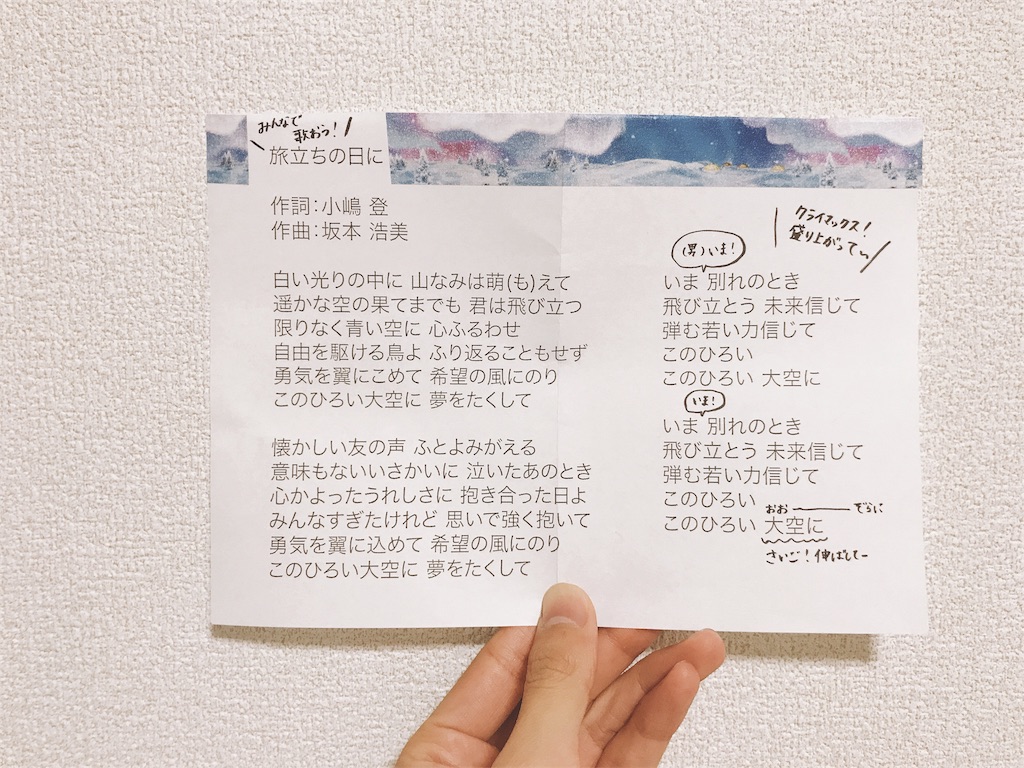 みんなで
歌おう!
旅立ちの日に
作詞:小嶋 登
作曲:坂本 浩美
白い光りの中に 山なみは萌(も)えて
遥かな空の果てまでも 君は飛び立つ
限りなく青い空に 心ふるわせ
自由を駆ける鳥よ ふり返ることもせず
勇気を翼にこめて 希望の風にのり
このひろい大空に 夢をたくして
懐かしい友の声 ふとよみがえる
意味もないいさかいに 泣いたあのとき
心かよったうれしさに 抱き合った日よ
みんなすぎたけれど 思いで強く抱いて
勇気を翼に込めて 希望の風にのり
このひろい大空に 夢をたくして
クライマックス!
盛り上がってぃ
(男)いま!
いま 別れのとき
飛び立とう 未来信じて
弾む若い力信じて
このひろい
このひろい 大空に
いま!
いま 別れのとき
飛び立とう 未来信じて
弾む若い力信じて
このひろい
おお――ぞらに
このひろい 大空に
さいご!伸ばしてー